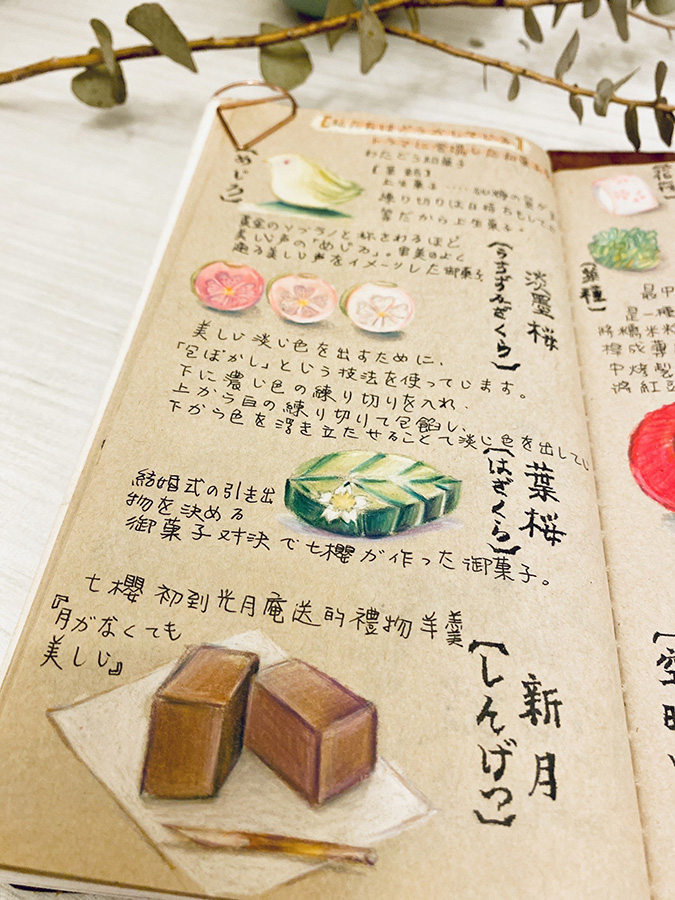 【私たちはどうかしている】
ドラマに登場した和菓子
わたどう和菓子
【めじろ】
上生菓子
練り切りは日持ちもして
等だから上生菓子。
黄金のソプラノと称されるほど
美しい声の「めじろ」。のよく
通る美しい声をイメージした御菓子
淡墨桜
【うすずみざくら】
美しい淡い色を出すために、
「包ぼかし」という技法を使ってします。
下に濃い色の練り切りを入れ、
上から白の練り切りで包餡し、
下から色を浮き立たせることで淡い色を出してい
葉桜
【はざくら】
結婚式の引き出
物を決める
御菓子対決で七櫻が作った御菓子。
七櫻初到光月庵送的禮物羊羹
『月がなくても
美しい』
新月
【しんげつ】
最中
是一種
將糯米粉
桿成薄
中烤製
將紅